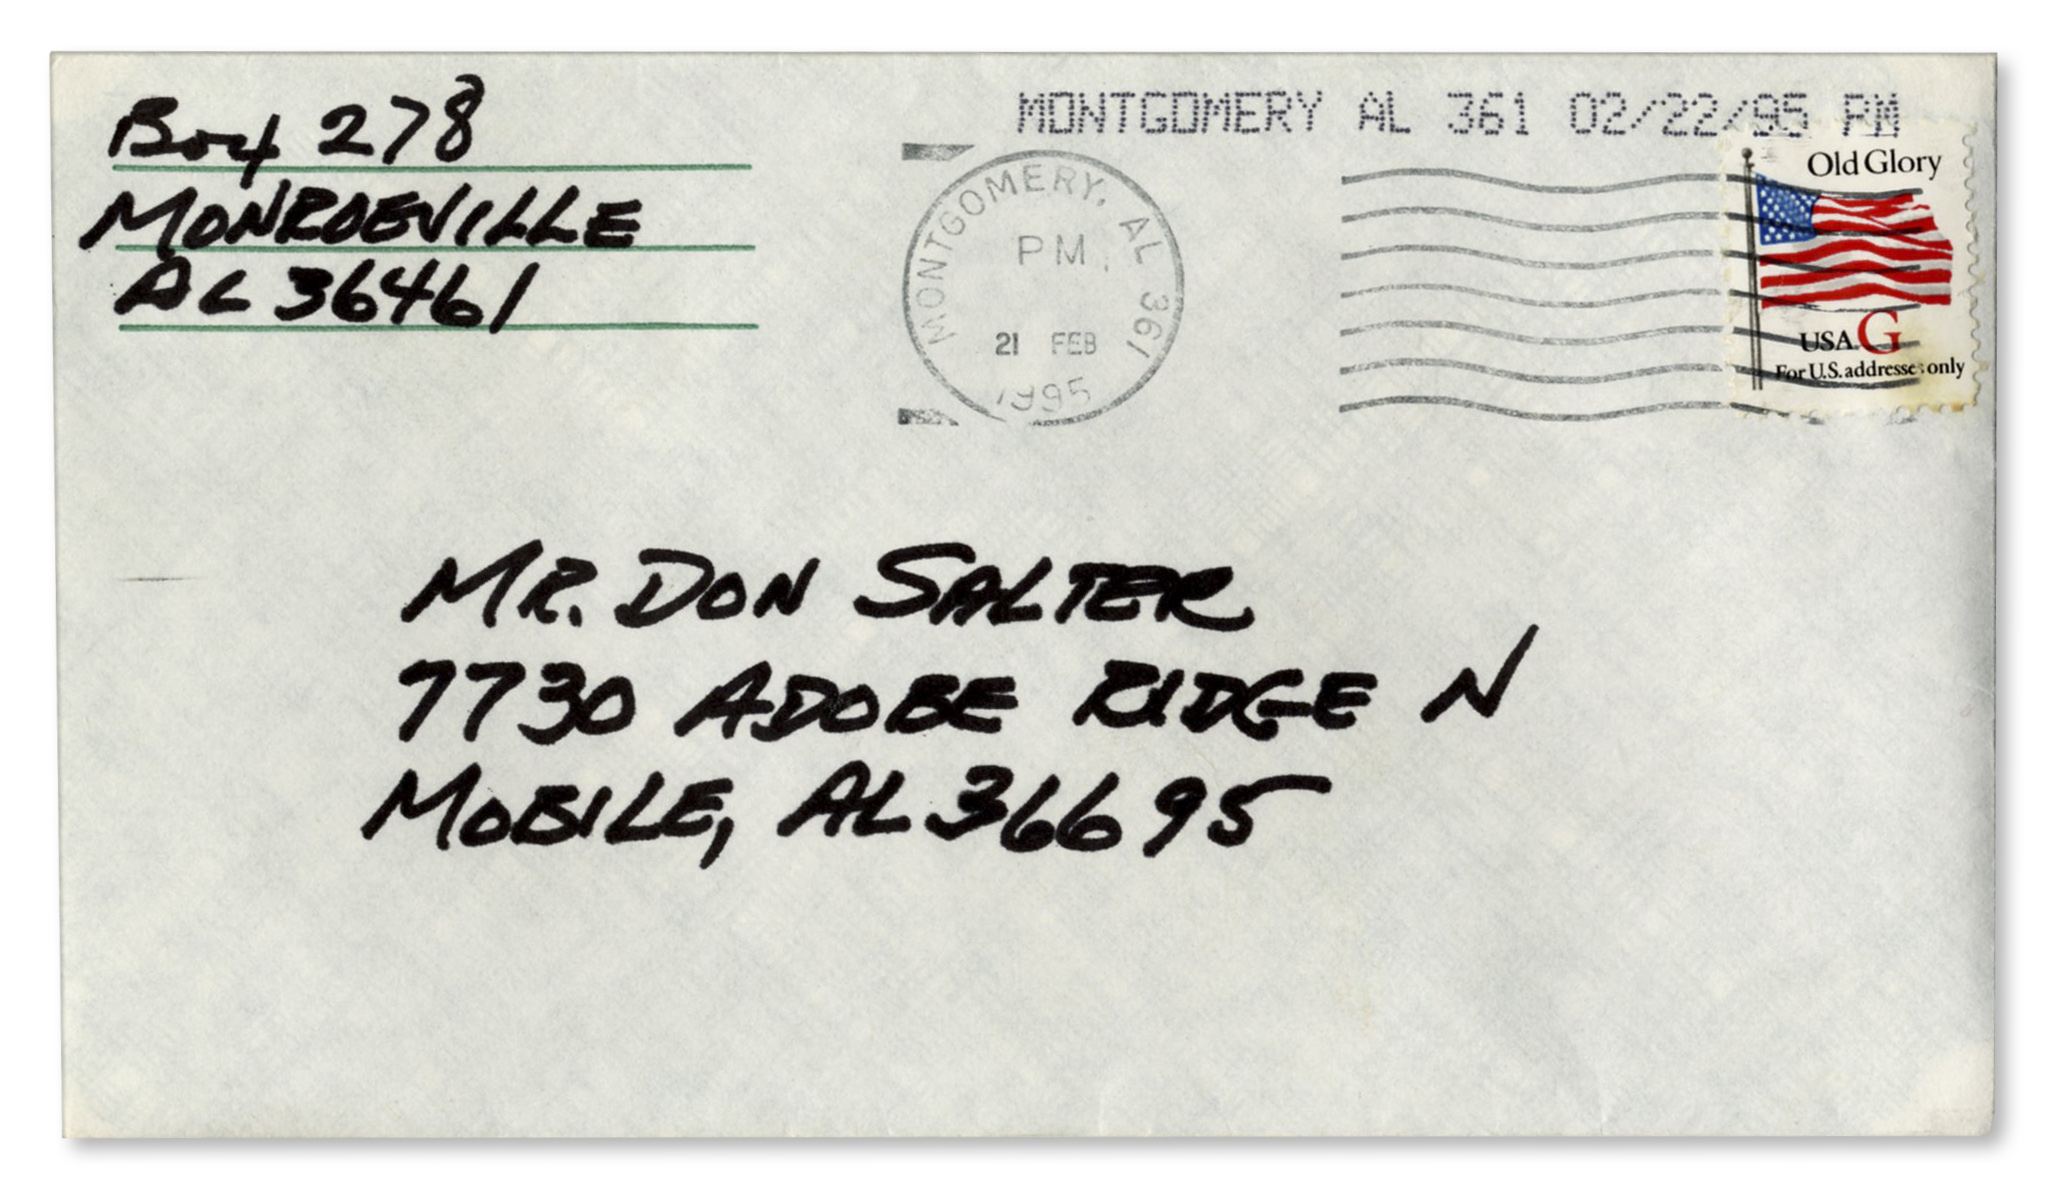 Box 278
MONROEVILLE
AL 36461
MONTGOMERY AL 361 02/22/95 PM
MONTGOMERY, AL 361
PM
21 FEB
1995
Old Glory
USA G
For U.S. addresses only
MR. DON SALTER
7730 ADOBE RIDGE N
MOBILE, AL 36695